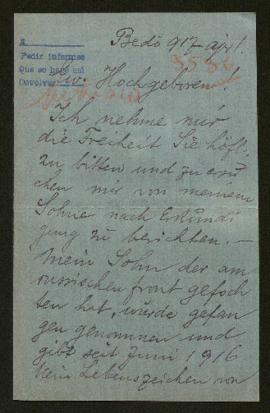 Bedö 917 apr 1.
2
Pedir informes
Que se hará así
Devolver
3536
Ew. Hochgeboren!
Ich nehme mir
die Freiheit Sie höfl.
zu bitten und zu ersu
chen mir von meinem
Sohne nach Erkundi
gung zu berichten. –
Mein Sohn der am
russischen front gefoch
ten hat, wurde gefan
gen genommen und
gibt seit Juni 1916
kein Lebenszeichen von